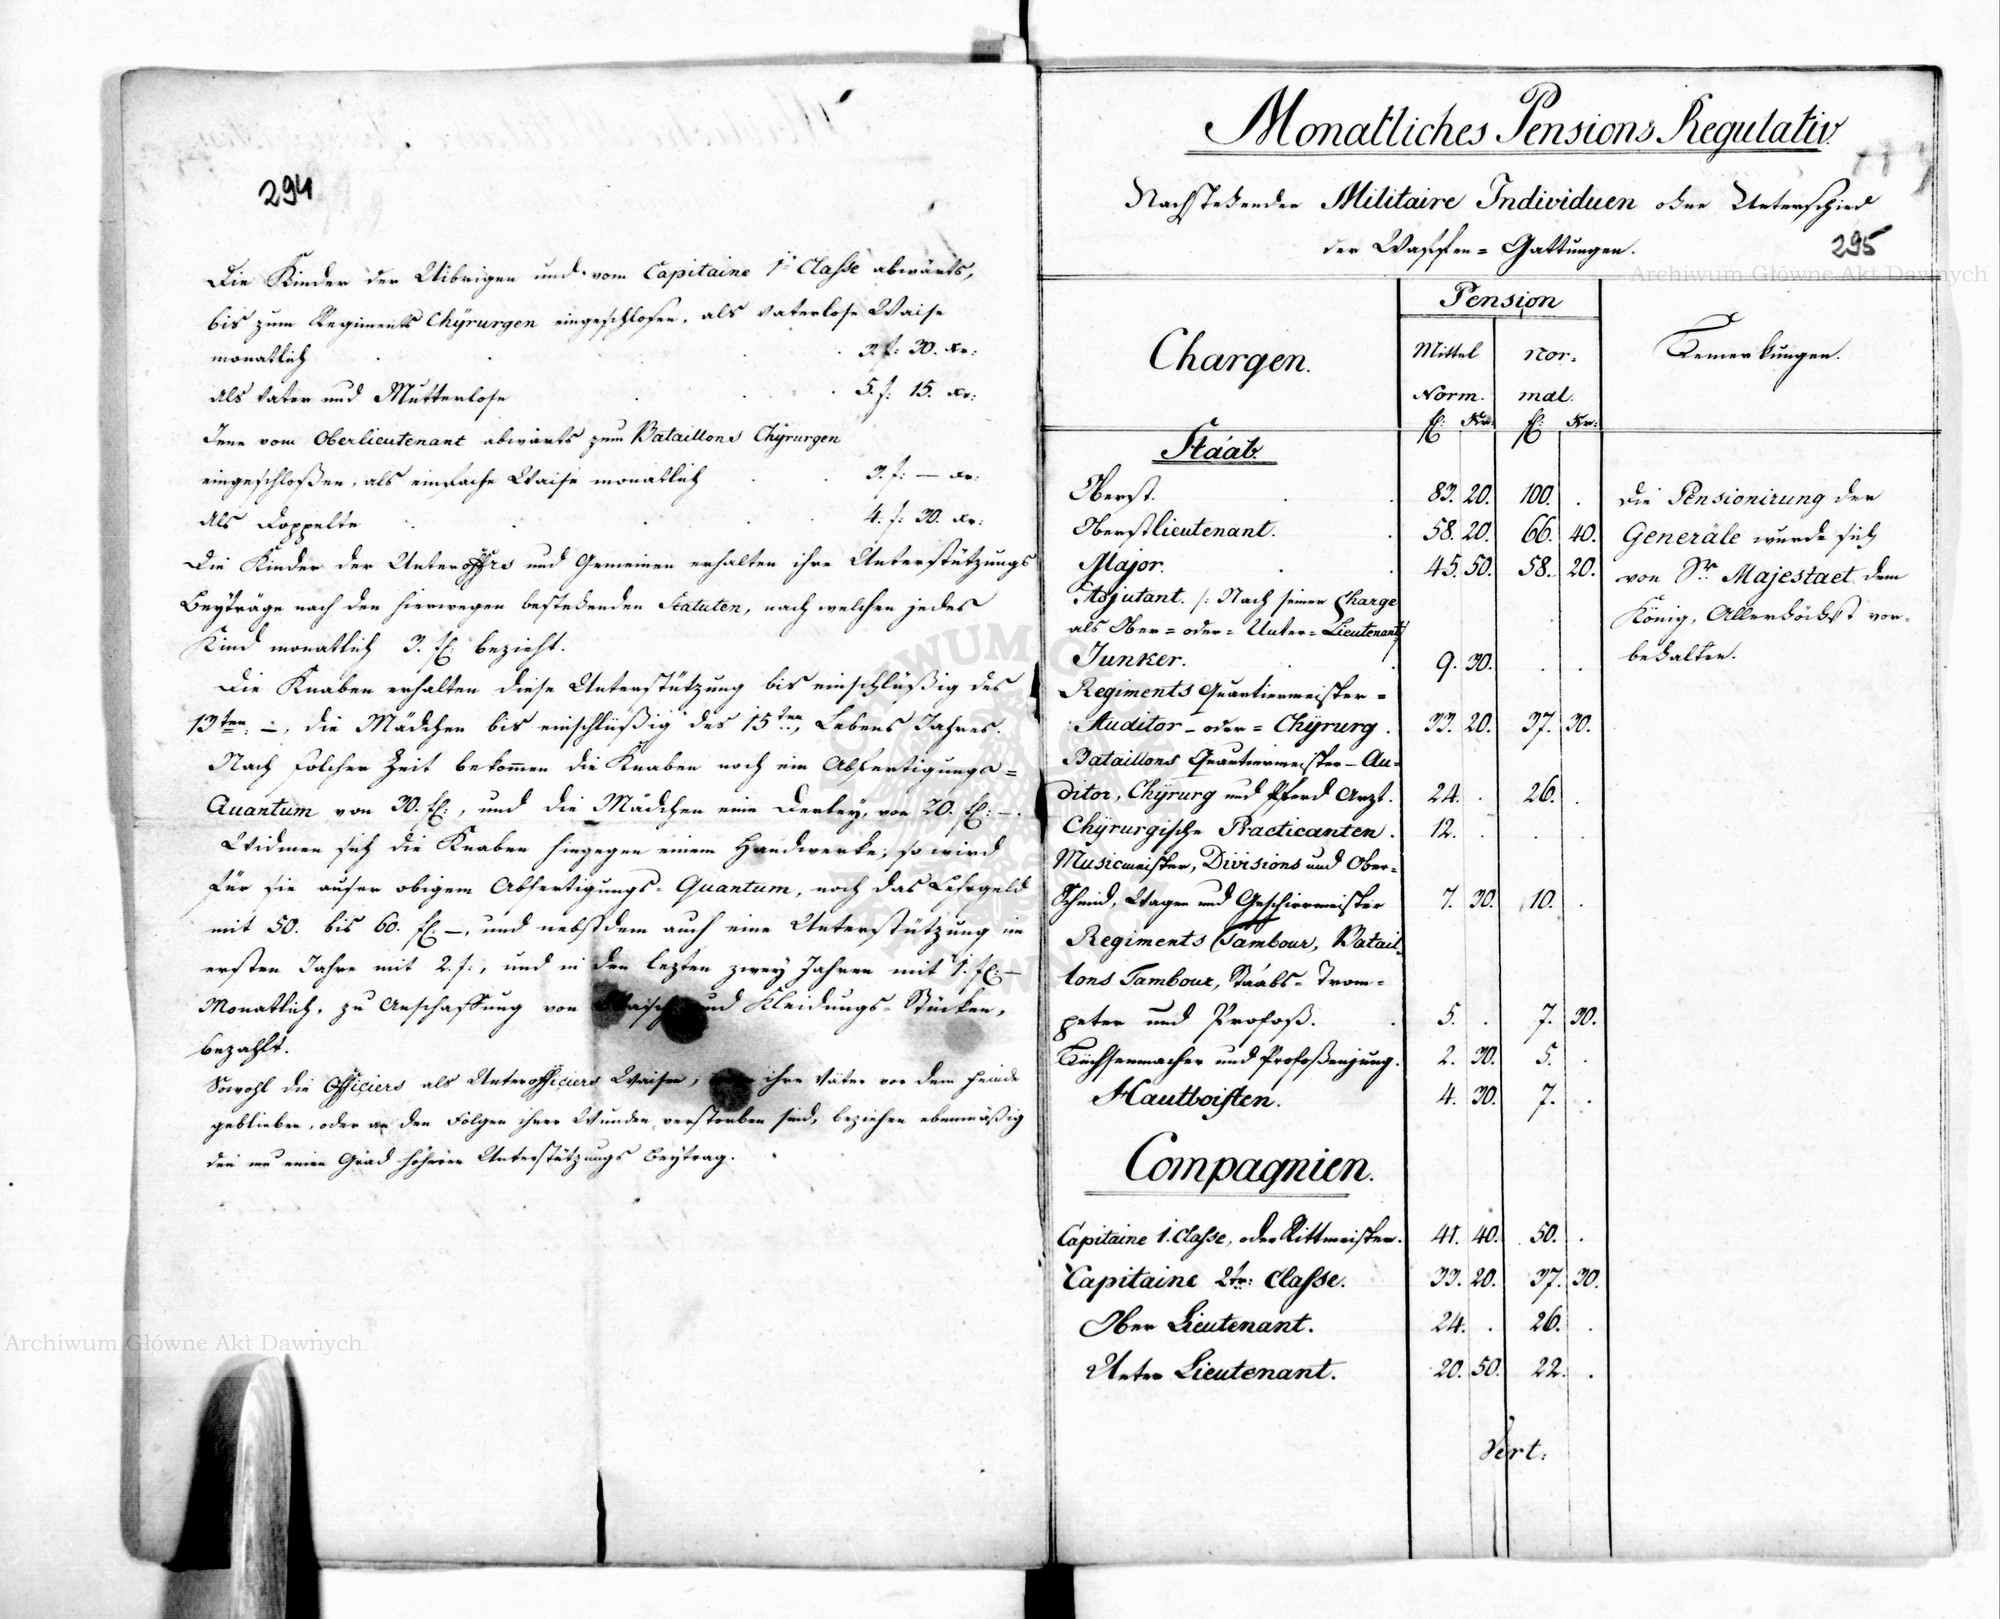 294
Die Kinder der Uibrigen und vom Capitaine 1r Classe abwärts,
bis zum Regiments Chÿrurgen eingeschlosen, als vaterlose Waise
monatlich . . . . 3. f: 30. Xr:
als vater und Mutterlose . . . 5. f: 15. Xr:
Jene vom Oberlieutenant abwärts zum Bataillons Chÿrurgen
eingeschloßen, als einfache Waise monatlich . . 3. f: — Xr:
Als Doppelte . . . . 4. f: 30. Xr:
Die Kinder der Unteroffrs und Gemeinen erhalten ihre Unterstützungs
Beÿträge nach den hierwegen bestehenden Statuten, nach welchen jedes
Kind monatlich 3. fl: bezieht.
Die Knaben erhalten diese Unterstützung bis einschlüßig des
13ten: –, die Mädchen bis einschlüßig des 15ten, Lebens Jahres.
Nach solcher Zeit bekomen die Knaben noch ein Abfertigungs=
Quantum von 30. fl:, und die Mädchen eine Derley, von 20. fl: –.
Widmen sich die Knaben hingegen einem Handwerke; so wird
für sie auser obigem Abfertigungs= Quantum, noch das Lehrgeld
mit 50. bis 60. fl. –, und nebstdem auch eine Unterstützung im
ersten Jahre mit 2. f:, und in den lezten zwey Jahren mit 1. fl: –
Monatlich, zu Anschaffung von Waisch und Kleidungs= Stücken,
bezahlt.
Sowohl die Officiers als Unterofficiers Waisen, ihre Väter vor dem Feinde
geblieben, oder an den Folgen ihrer Wunden verstorben sind, beziehen ebenmäßig
den um einen Grad höheren Unterstützungs Beytrag.
Monatliches Pensions Regulativ.
Nachstehender Militaire Individuen ohne Unterschied
der Waffen= Gattungen.
295
Archiwum Główne Akt Dawnych
Chargen.
Pension
Mittel Norm. nor= mal.
fl: Xr: fl: Xr:
Bemerkungen.
Staab.
Oberst. . . 83. 20. 100. .
Oberstlieutenant. . 58. 20. 66. 40.
Major. . . 45. 50. 58. 20.
Adjutant. /: Nach seiner Charge
als Ober= oder= Unter= Lieutenant/
Junker. . . 9. 30. . .
Regiments Quartiermeister=
Auditor – oder= Chÿrurg . 33. 20. 37. 30.
Bataillons Quartiermeister – Au=
ditor, Chÿrurg und Pferd Arzt. 24. . 26. .
Chÿrurgische Practicanten . 12. . . .
Musicmeister, Divisions und Ober=
Schmid, Wagen und Geschirrmeister 7. 30. 10. .
Regiments Tambour, Batail
lons Tambour, Staabs= Trom=
peter und Profoß. . 5. . 7. 30.
Büchsenmacher und Profoßenjung. 2. 30. 5. .
Hautboisten. 4. 30. 7. .
Compagnien.
Capitaine 1. Classe, oder Rittmeister. 41. 40. 50. .
Capitaine 2tr: Classe. 33. 20. 37. 30.
Ober Lieutenant. 24. . 26. .
Unter Lieutenant. 20. 50. 22. .
Vert:
Die Pensionirung der
Generäle wurde sich
von Sr Majestaet dem
König, Allerhöchst vor=
behalten.
Archiwum Główne Akt Dawnych